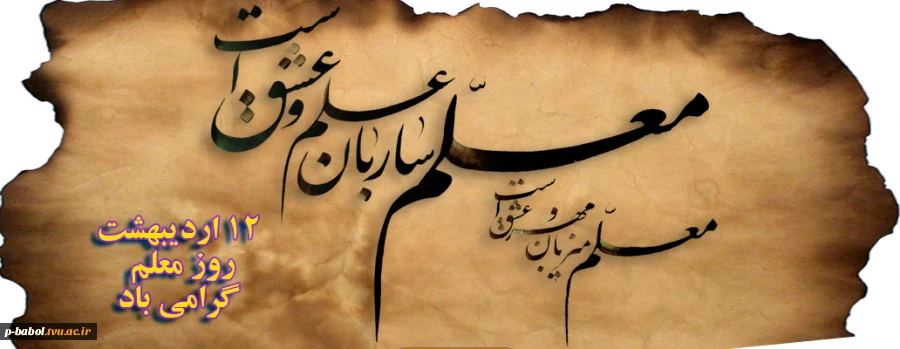 معلّم ساربان علم و عشق است
معلّم میزبان مهر و عشق است
۱۲ اردیبهشت
روز معلم
گرامی باد
p-babol.tvu.ac.ir